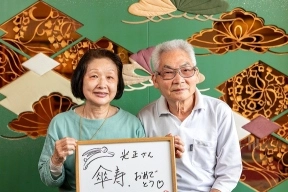 光正さん
傘寿、おめでとう♡